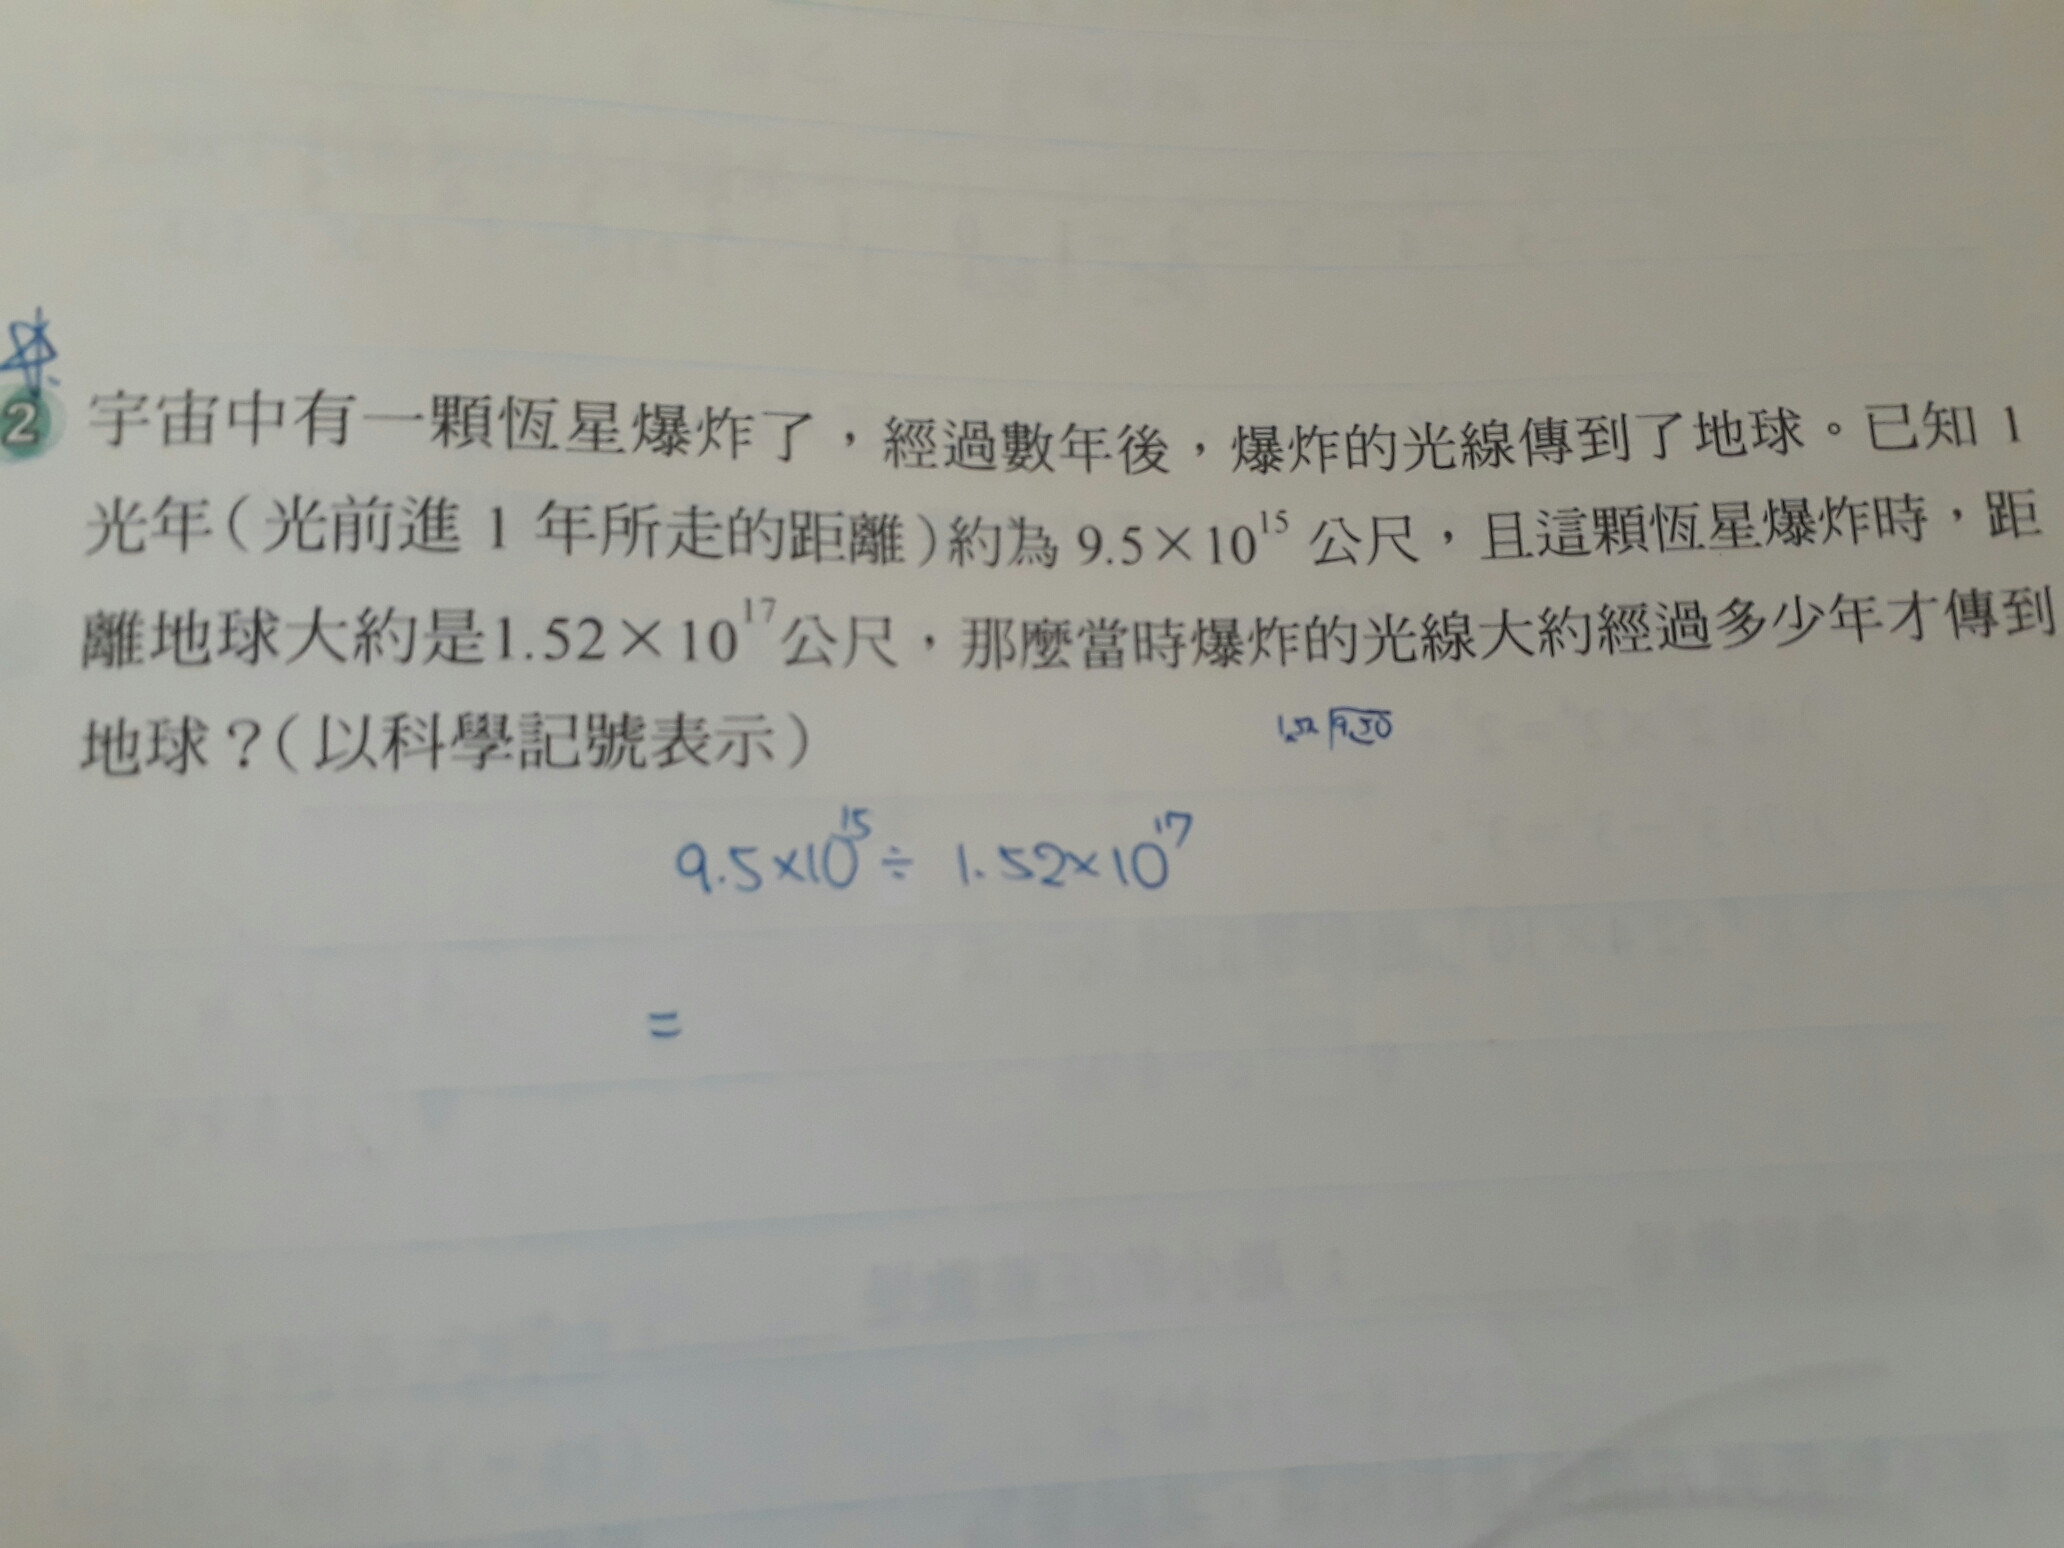 2 宇宙中有一顆恆星爆炸了，經過數年後，爆炸的光線傳到了地球。已知 1
光年(光前進 1 年所走的距離)約為 9.5×10¹⁵ 公尺，且這顆恆星爆炸時，距
離地球大約是1.52×10¹⁷公尺，那麼當時爆炸的光線大約經過多少年才傳到
地球？(以科學記號表示)
1.52 9.50
9.5×10¹⁵ ÷ 1.52×10¹⁷
=